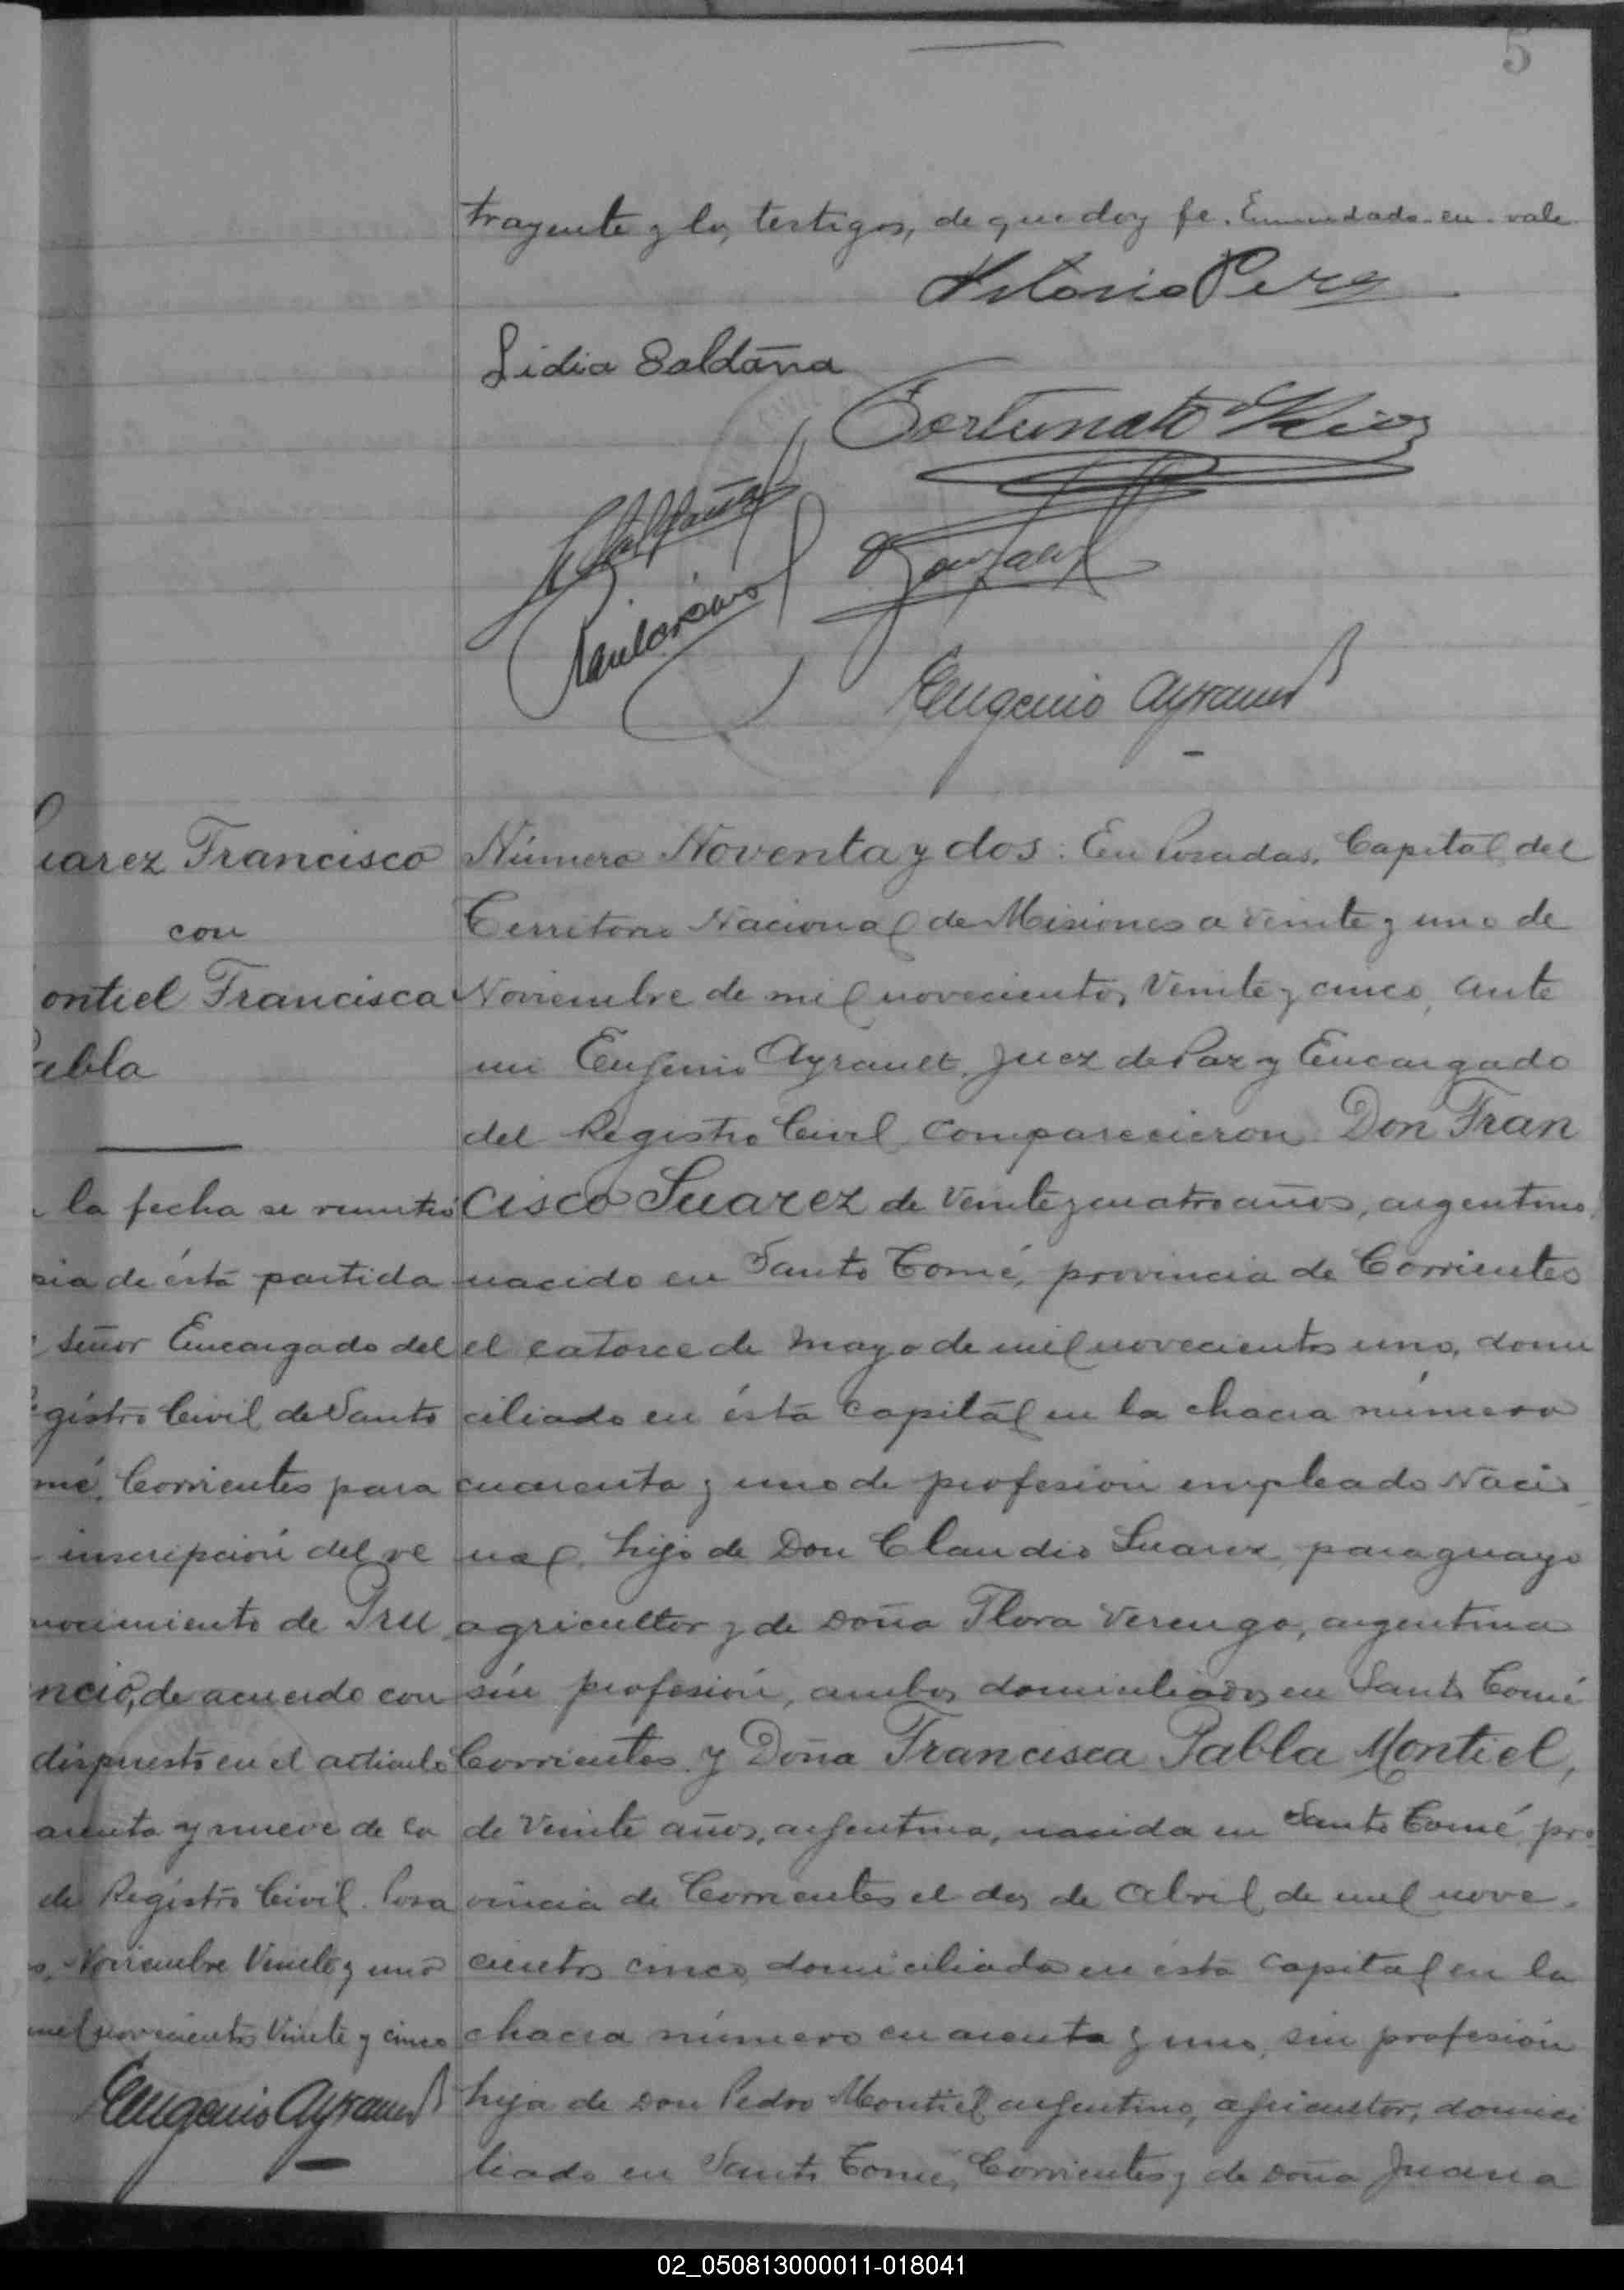 5
trayente y los testigos, de que doy fe. Enmendado-en-vale
Lidia Saldaña
Fortunato Rios
Eugenio Ayrault
uarez Francisco
con
ontiel Francisca
abla
la fecha se remitió
pia de ésta partida
Señor Encargado del
gistro Civil de Santo
mé, Corrientes para
inscripción del re
nocimiento de Pru
ncio, de acuerdo con
dispuesto en el articulo
arenta y nueve de la
de Registro Civil. Posa
s, Noviembre Veinte y uno
mil novecientos Veinte y cinco
Eugenio Ayrault
Número Noventa y dos: En Posadas, Capital del
Territorio Nacional de Misiones a veinte y uno de
Noviembre de mil novecientos Veinte y cinco, ante
mi Eugenio Ayrault, Juez de Paz y Encargado
del Registro Civil comparecieron Don Fran
cisco Suarez de veinte y cuatro años, argentino,
nacido en Santo Tomé, provincia de Corrientes
el catorce de Mayo de mil novecientos uno, domi
ciliado en ésta capital en la chacra número
cuarenta y uno de profesion empleado Nacio
nal, hijo de Don Claudio Suarez, paraguayo
agricultor y de Doña Flora Verengo, argentina
sin profesión, ambos domiciliados en Santo Tomé
Corrientes y Doña Francisca Pabla Montiel,
de Veinte años, argentina, nacida en Santo Tomé, pro
vincia de Corrientes el dos de Abril de mil nove-
cientos cinco, domiciliada en ésta capital en la
chacra número cuarenta y uno, sin profesión
hija de Don Pedro Montiel argentino, agricultor, domici
liado en Santo Tomé, Corrientes y de Doña Juana
02_050813000011-018041